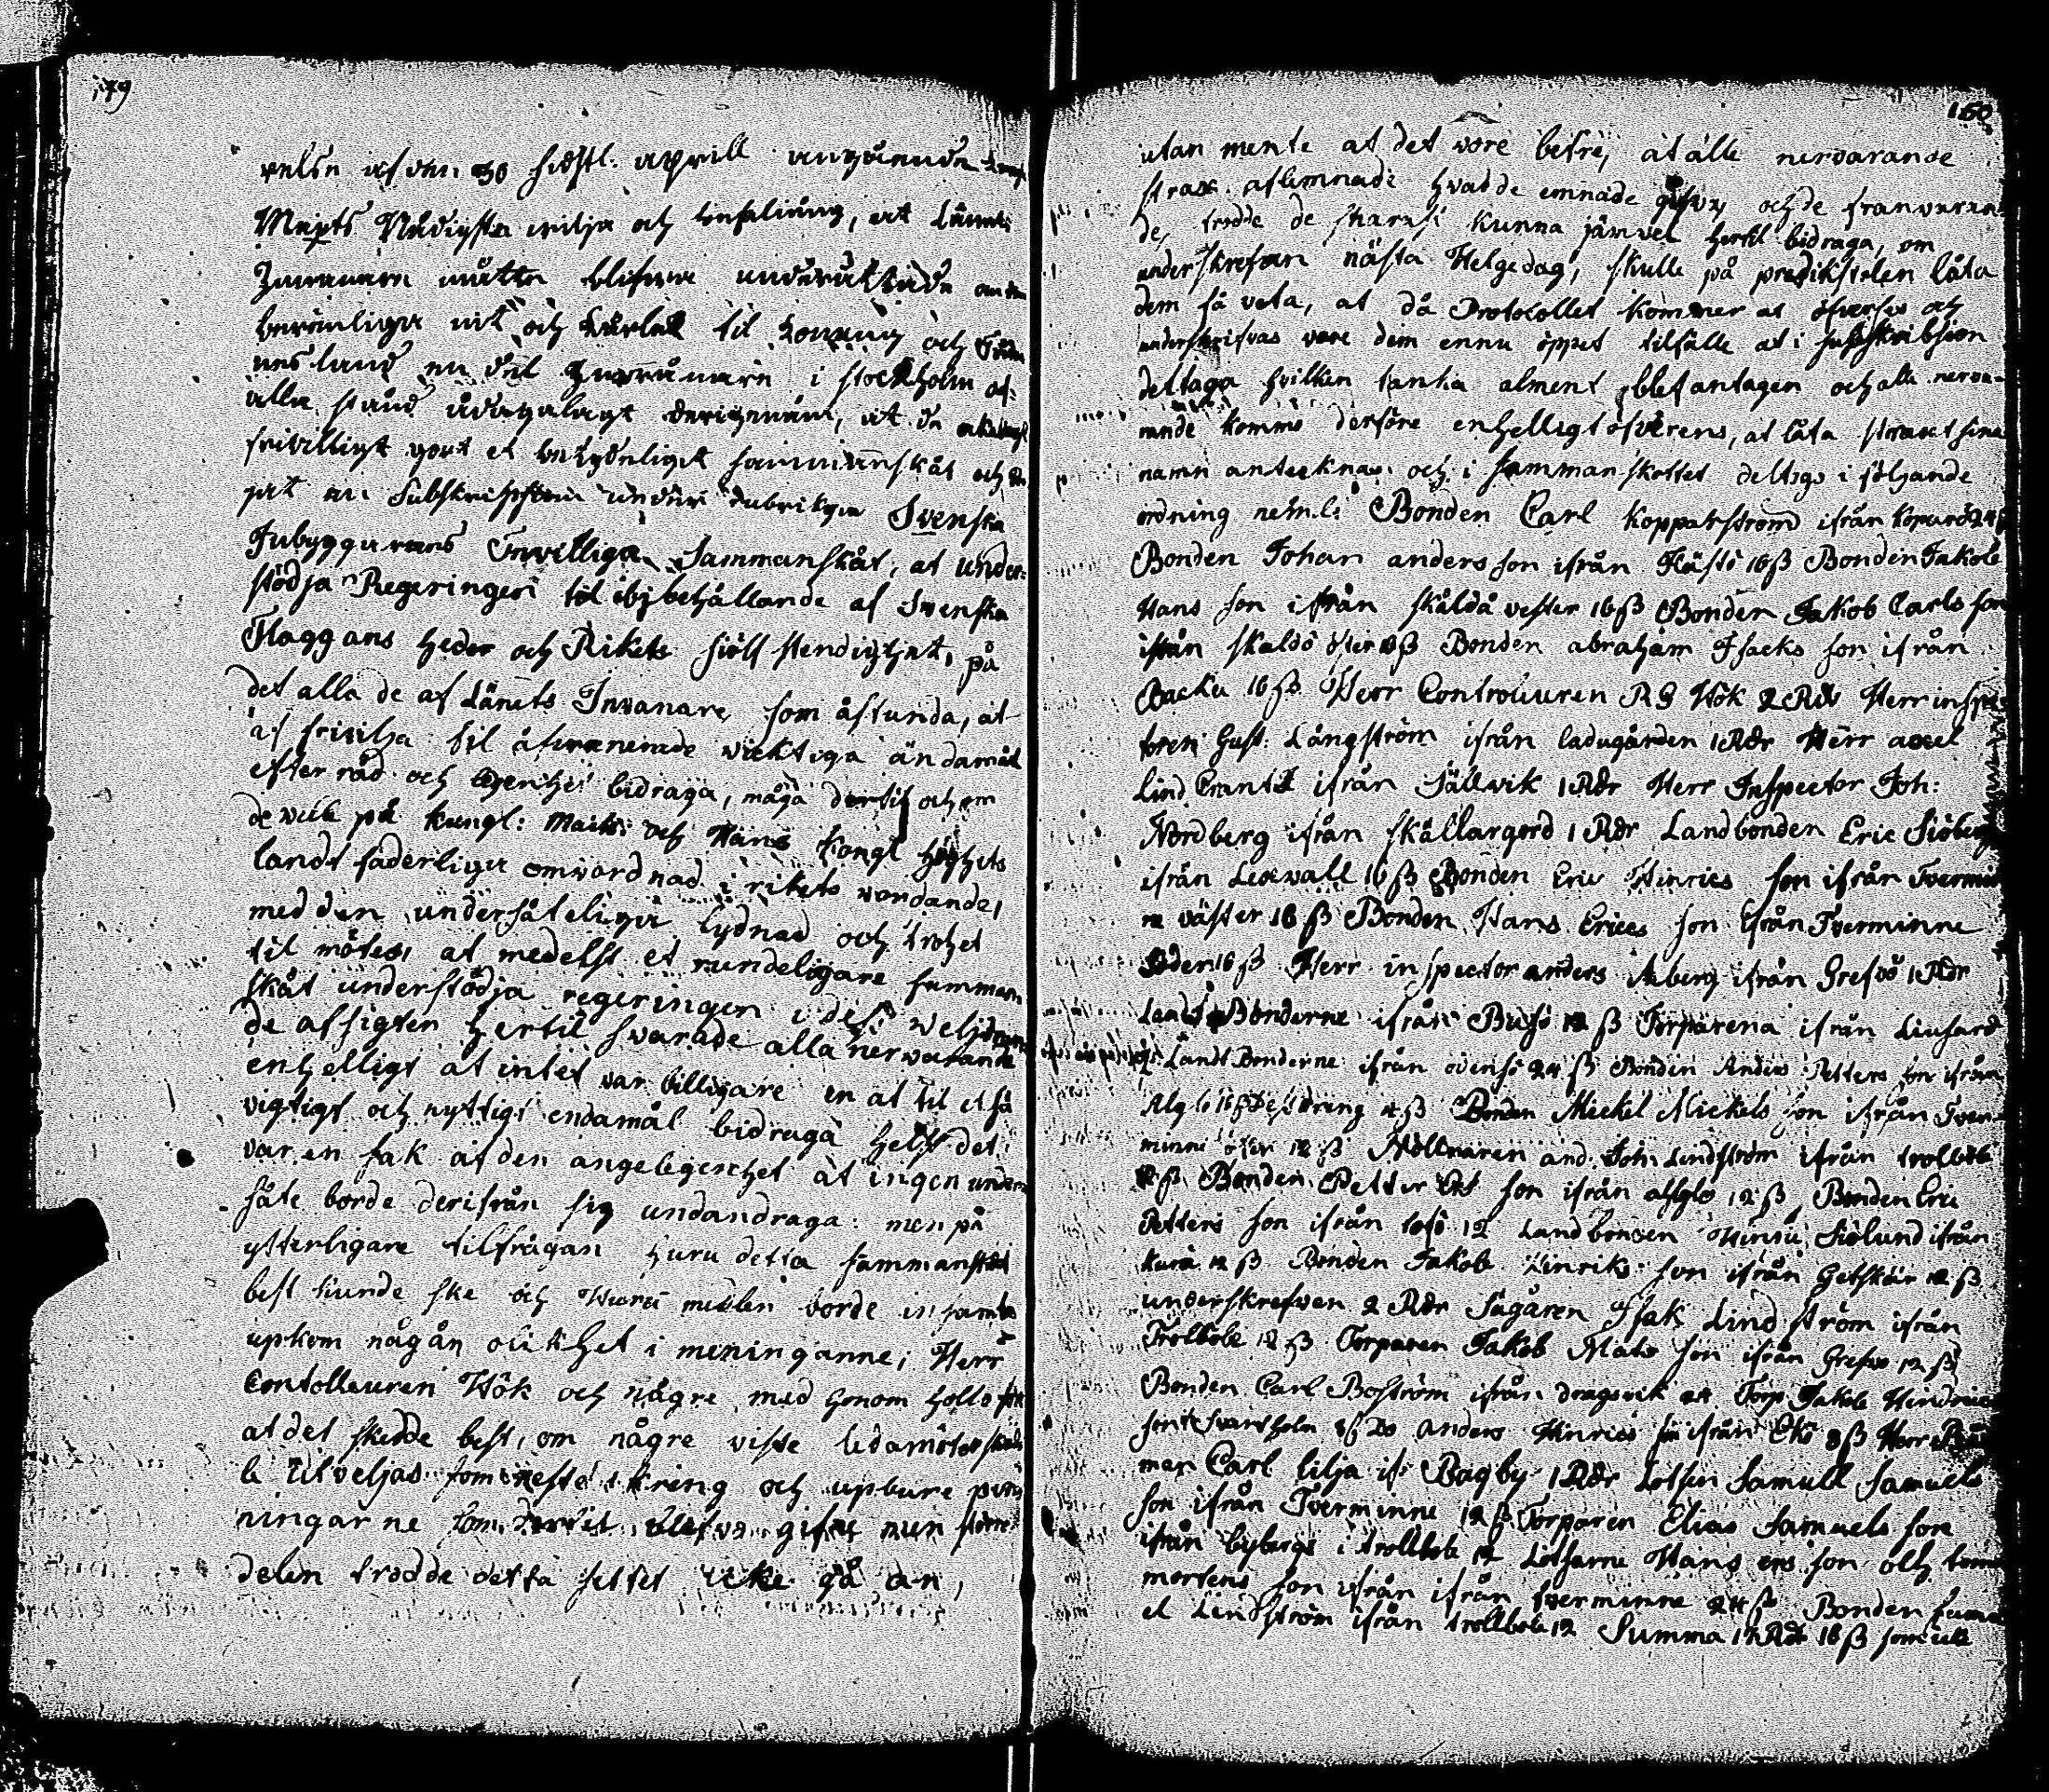 179
relse af den 30 sidstl. aprill angående Kongl
Majts Nådigsta vilja och befalning, at Länets
Inwånare måtte blifwa underrättade om den
berömliga nit och kärlek til Konung och Fäder
nesland en del Inwånare i Stockholm af
alla stånd ådagalagt derigenom, at de
frivilligt gort et betydeligit sammanskåt och
jat en Subskription under rubriken Svenska
Inbyggarens Enwilliga Sammanskåt, at under-
stödja Regeringen til ibibehållande af Svenska
Flaggans heder och Rikets siölfstendighet, på
det alla de af Länets Invanare som åstunda, at
af fri vilja til åfwannemde wicktiga ändamål
efter råd och lägenhet bidraga, måga dertil och om
de wille på Kungl: Maits och Hans Kongl Höghets
landsfaderliga omwordnad i rikets wordande,
med den undersåteliga lydnad och trohet
til mötes, at medelst et rundeligare samman
skåt understödja regeringen i dess weljdran
de afsigten hertil swarade alla nerwarande
enhelligt at intet war billigare en at til et så
vigtigt och nyttigt endamål bidraga helst det
var en sak af den angelegenhet at ingen under
såte borde derifrån sig undandraga: men på
ytterligare tilfrågan huru detta sammanskåt
best kunde ske och Huru medlen borde insamla
upkom någån olikhet i meninganne; Herr
Contolleuren Hök och någre med honom hollo för
at det skedde best, om någre viste ledamöter skul
le utveljas som reste ikring och upbure pen
ningarne som dertil blefvo gifne men störrre
delen trodde detta settet icke gå an,
150
utan mente at det vore betre, at alle nervarande
strax aflemnade hvad de emnade gifva, och de franvaran
de, trodde de skarasi kunna jämwel hertil bidraga, om
underskrefwen nästa Helgedag, skulle på predikstolen låta
dem få veta, at då Protocollet kommer at öfverses och
underskrifvas vore dem ennu öppet tilfälle at i subskribsion
deltaga hvilken tanka alment blef antagen och alle nerva-
rande kommo derföre enhelligt öfverens, at låta straxt sina
namn anteckna, och i sammanskottet deltogo i följande
ordning neml. Bonden Carl Kopparström ifrån Koparö 24 ß
Bonden Johan andersson ifrån Flästö 16 ß Bonden Jakob
Hans son ifrån skåldå vester 16 ß Bonden Jakob Carls son
ifrån skaldö öster 8 ß Bonden abraham Isacks son ifrån
Backa 16 ß Herr Controleuren R G Hök 2 Rdr Herr inspec
toren Gust. Långström ifrån ladugården 1 Rdr Herr axel
Lind Crantz ifrån Sällvik 1 Rdr Herr Inspector Joh:
Nordberg ifrån skållargord 1 Rdr Landbonden Eric Siöberg
ifrån Lexwall 16 ß Bonden Eric Hinrics son ifrån Tvermin
ne väster 16 ß Bonden Hans Erics son ifrån Tverminne
söder 16 ß Herr inspector anders Åberg ifrån Grefsö 1 Rdr
Landt Bönderne ifrån Busö 12 ß Torparena ifrån
Landt Bonderne ifrån odensö 24 ß Bonden Anders Petters son ifrån
Alglo 16 ß 4 ß Bonden Mickel Mickels son ifrån Tver-
minne öster 12 ß Möllnaren and. Joh: Lindström ifrån trollböle
12 ß Bonden Petter Ers son ifrån alglo 12 ß Bonden Eric
Petters son ifrån 12 Landbonden Hinric Siölund ifrån
12 ß Bonden Jakob Hinriks son ifrån Getskär 12 ß
underskrefwen 2 Rdr Sågaren Isak Lindström ifrån
Trolböle 12 ß Torparen Jakob Mats son ifrån Grefsö 12 ß
Bonden Carl Boström ifrån dragsvik 24 Torp Jakob Hindrics
son ifr Svartholm 8 ß Do Anders Hinrics son ifrån Ekö 8 ß Herr
man Carl Lilja if: Bagby 1 Rdr Lotsen Samuel Samuels
son ifrån Tverminne 12 ß Torparen Elias Samuels son
ifrån bybergs i trollböle 12 Lotsarne Hans ers son och
mortens son ifrån ifrån tverminne 24 ß Bonden Samu
el Lindström ifrån trollböle 12 Summa 17 Rdr 16 ß som